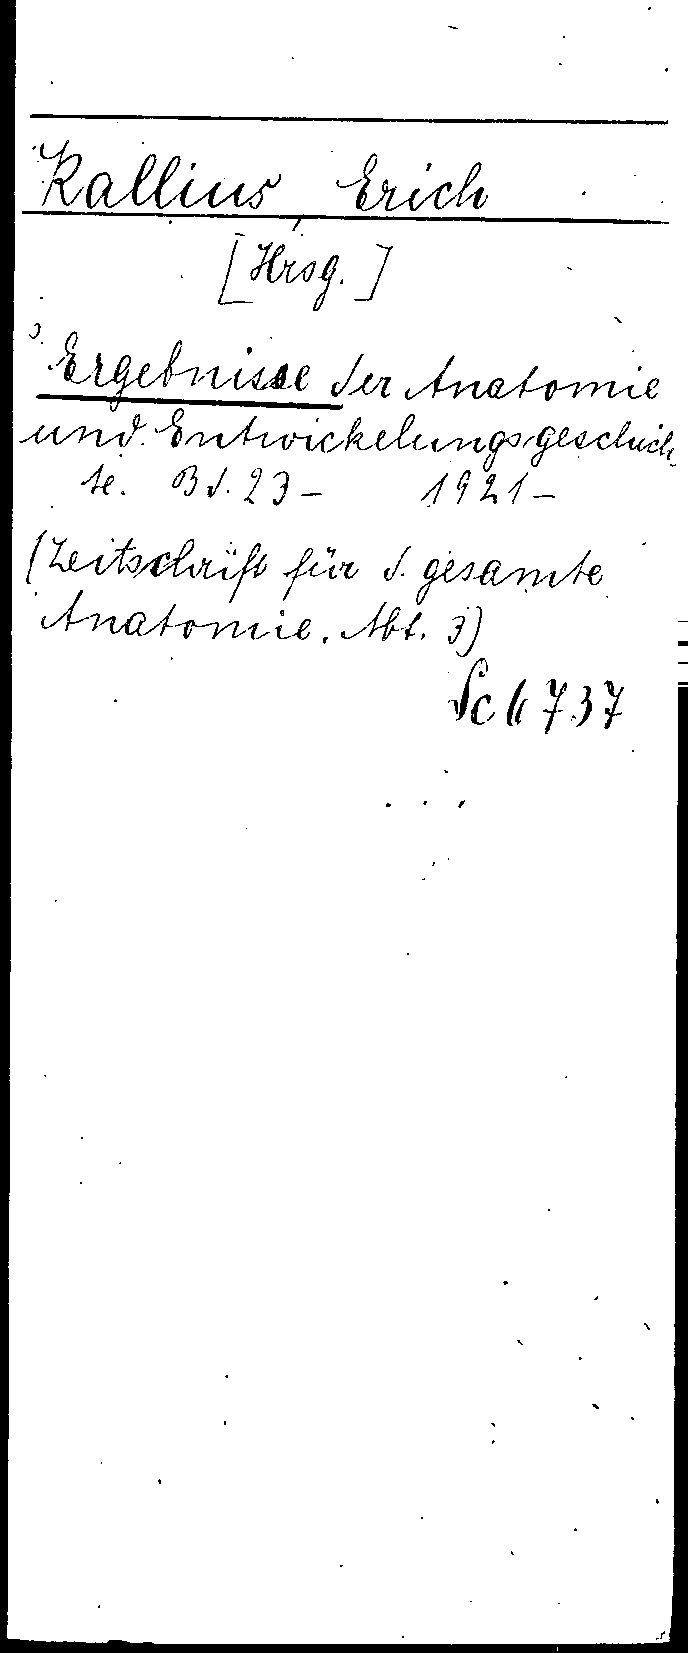 Kallius, Erich
[Hrsg.]
Ergebnisse der Anatomie
und Entwickelungsgeschich-
te. Bd. 23- 1921-
(Zeitschrift für d. gesamte
Anatomie. Abt. 3)
Sc 6737